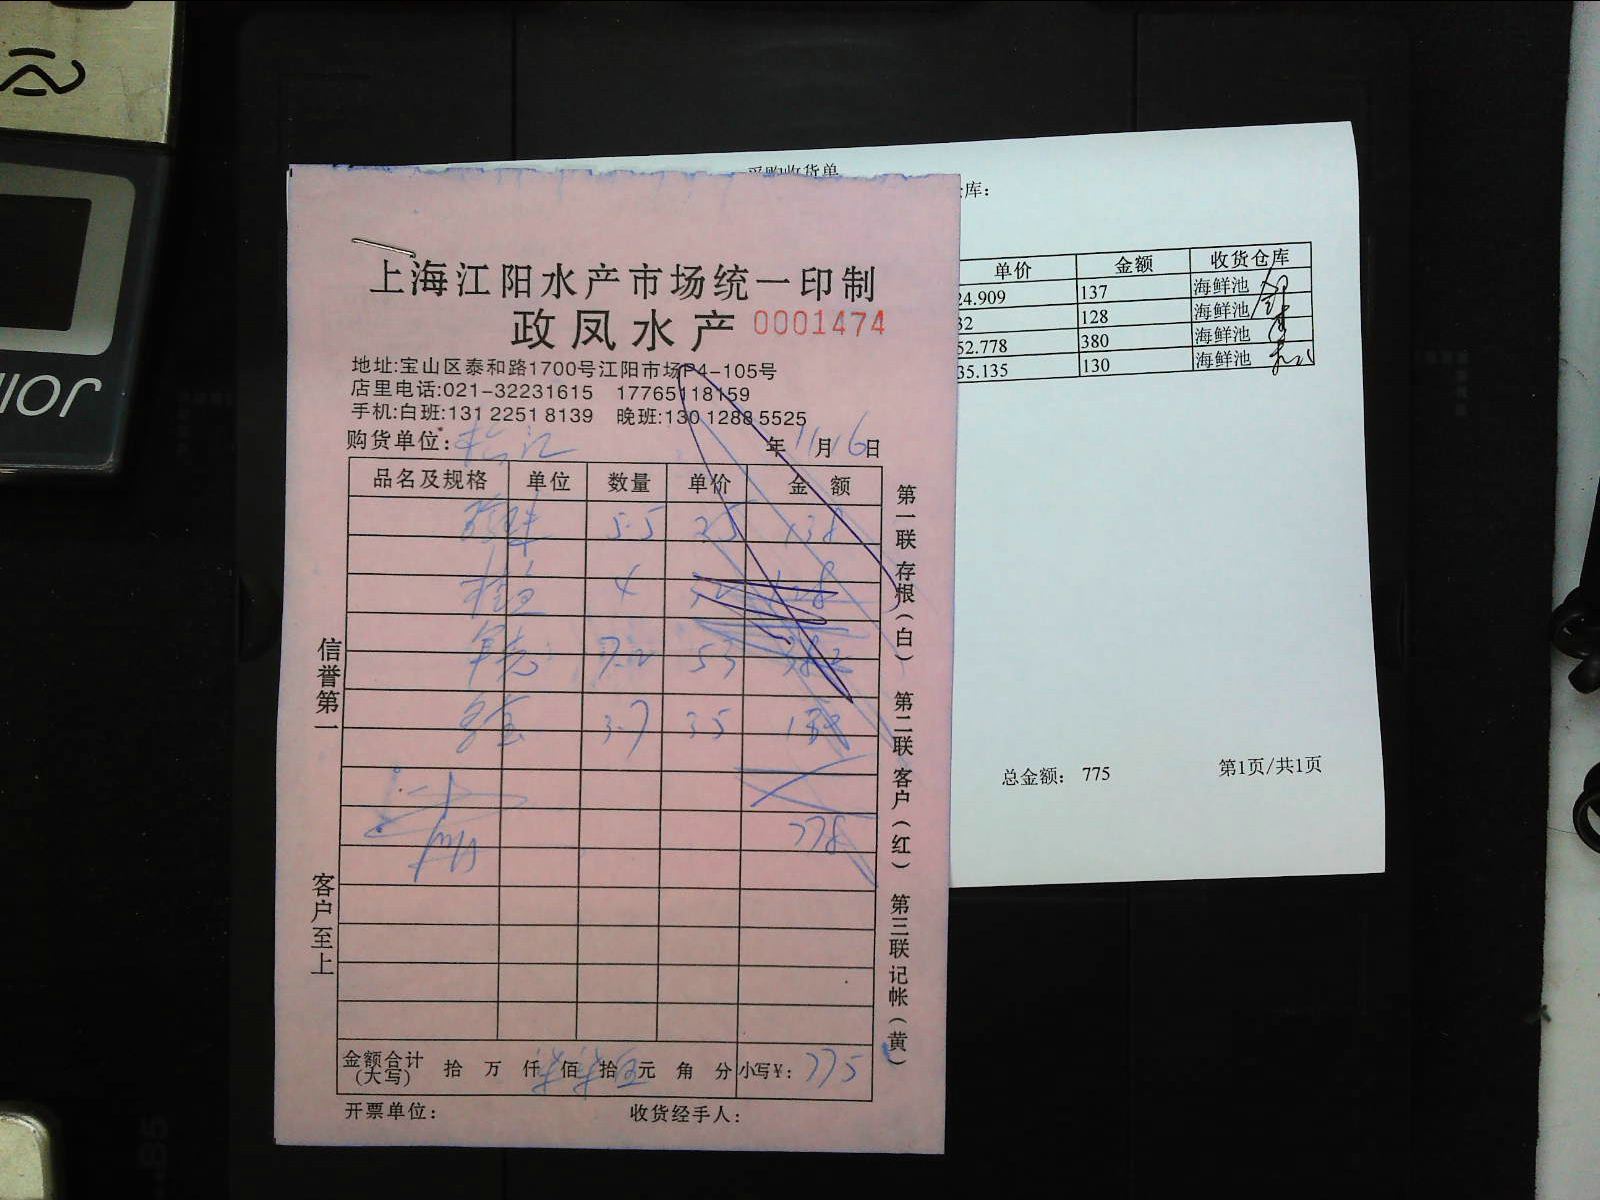 采购收货单
库:
单价 金额 收货仓库
24.909 137 海鲜池
32 128 海鲜池
52.778 380 海鲜池
35.135 130 海鲜池
总金额: 775 第1页/共1页
上海江阳水产市场统一印制
政凤水产 0001474
地址:宝山区泰和路1700号江阳市场P4-105号
店里电话:021-32231615 17765118159
手机:白班:131 2251 8139 晚班:130 1288 5525
购货单位: 松江 年 11 月 16 日
品名及规格 单位 数量 单价 金额
5.5 25 138
4 32 128
7.2 53 382
3.7 35 130
778
金额合计(大写) 拾 万 仟 柒 佰 柒 拾 伍 元 角 分 小写¥: 775
开票单位: 收货经手人:
信誉第一
客户至上
第一联 存根(白) 第二联 客户(红) 第三联 记帐(黄)